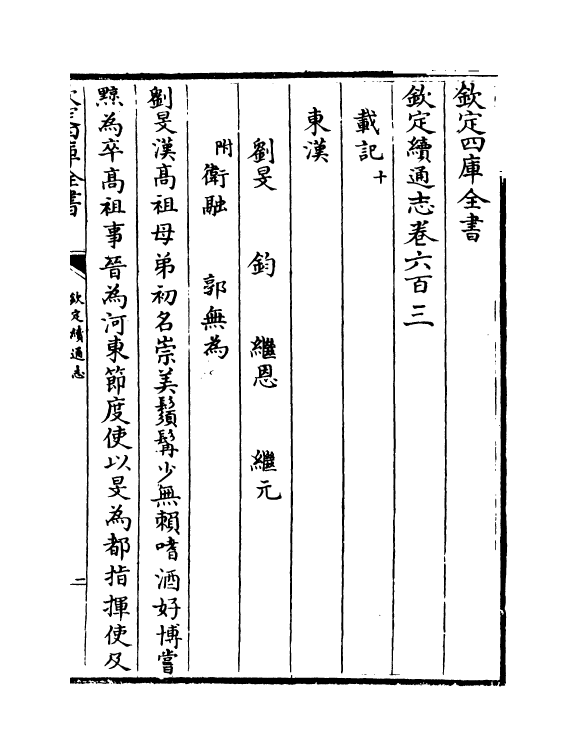 欽定四庫全書
欽定續通志卷六百三
載記十
東漢
劉旻 鈞 繼恩 繼元
附衛融 郭無為
劉旻漢高祖母弟初名崇美鬚髯少無賴嗜酒好博嘗
黥為卒高祖事晉為河東節度使以旻為都指揮使及
欽定四庫全書
欽定續通志